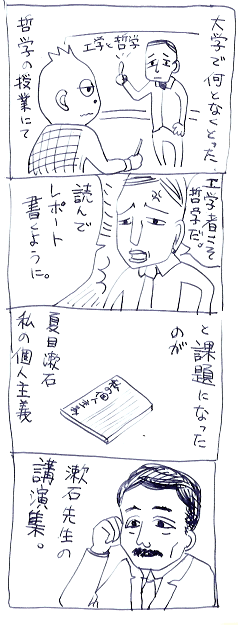 大学で何となくとった
哲学の授業にて
工学と哲学
工学者こそ
哲学だ。
読んで
レポート
書くように。
と課題になった
のが
私の個人主義
夏目漱石
私の個人主義
漱石先生の
講演集。